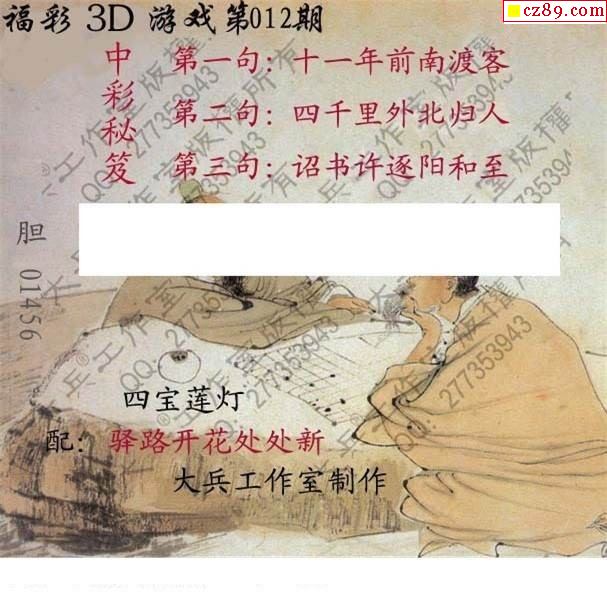 福彩 3D 游戏第012期
cz89.com
中彩秘笈
第一句：十一年前南渡客
第二句：四千里外北归人
第三句：诏书许逐阳和至
胆 01456
四宝莲灯
配：驿路开花处处新
大兵工作室制作
大兵®工作室版权所有
QQ：277353943